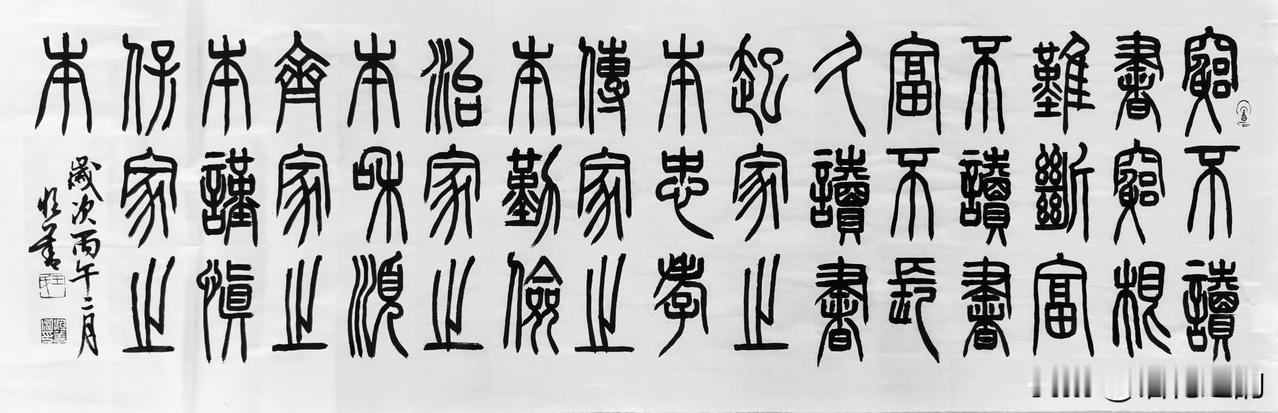 窮不讀
書窮根
難斷富
不讀書
富不長
久讀書
起家之
本忠孝
傳家之
本勤儉
治家之
本和順
齊家之
本謹慎
保家之
本
歲次丙午二月
書